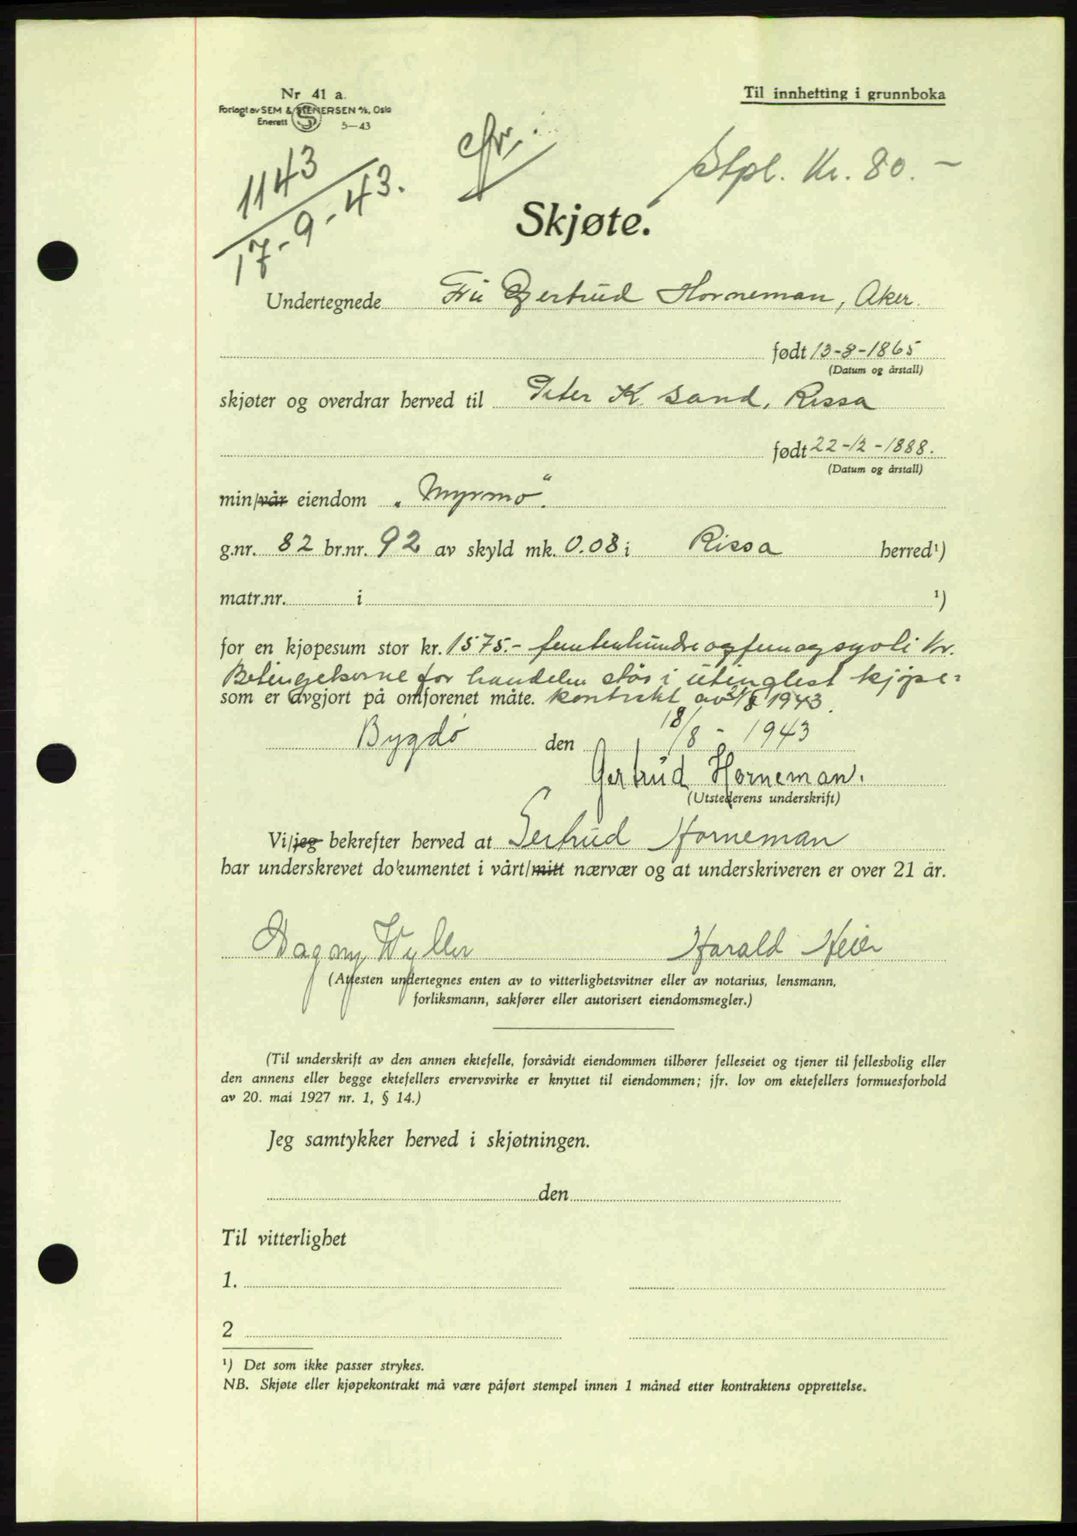 Nr 41 a.
Til innhefting i grunnboka
Forlagt av SEM & STENERSEN A/S, Oslo
Enerett S 5—43
1143
17-9-43.
Stpl. Kr. 80.—
Skjøte.
Undertegnede Fru Gertrud Horneman, Aker.
født 13-8-1865
(Datum og årstall)
skjøter og overdrar herved til Peter K. Sand, Rissa
født 22-12-1888.
(Datum og årstall)
min/vår eiendom „Myrmo“.
g.nr. 82 br.nr. 92 av skyld mk. 0.08 i Rissa herred¹)
matr.nr. i ¹)
for en kjøpesum stor kr. 1575.- femtenhundreogfemogsyvti kr.
Betingelserne for handelen står i utinglest kjøpe=
som er avgjort på omforenet måte. kontrakt av 1943.
Bygdö den 18/8 - 1943
Gertrud Horneman.
(Utstederens underskrift)
Vi/jeg bekrefter herved at Gertrud Horneman
har underskrevet dokumentet i vårt/mitt nærvær og at underskriveren er over 21 år.
Dagny Wyller Harald Heier
(Attesten undertegnes enten av to vitterlighetsvitner eller av notarius, lensmann,
forliksmann, sakfører eller autorisert eiendomsmegler.)
(Til underskrift av den annen ektefelle, forsåvidt eiendommen tilhører felleseiet og tjener til fellesbolig eller
den annens eller begge ektefellers ervervsvirke er knyttet til eiendommen; jfr. lov om ektefellers formuesforhold
av 20. mai 1927 nr. 1, § 14.)
Jeg samtykker herved i skjøtningen.
den
Til vitterlighet
1.
2
¹) Det som ikke passer strykes.
NB. Skjøte eller kjøpekontrakt må være påført stempel innen 1 måned etter kontraktens opprettelse.